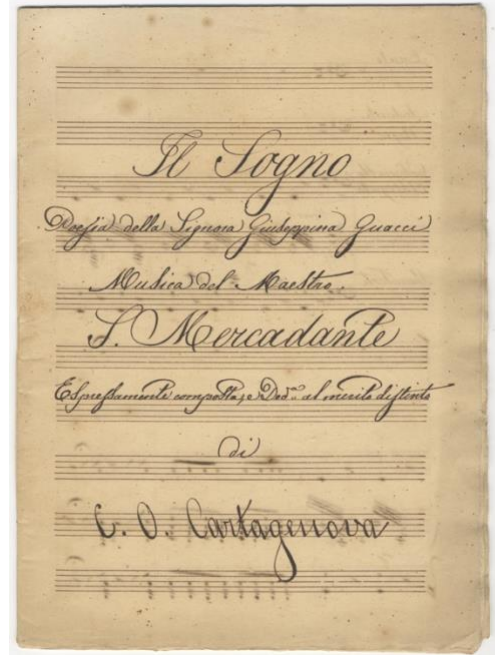 Il Sogno
Poesia della Signora Giuseppina Guacci
Musica del Maestro
S. Mercadante
Espressamente composta, e Ded.ª al merito distinto
di
C. O. Cartagenova